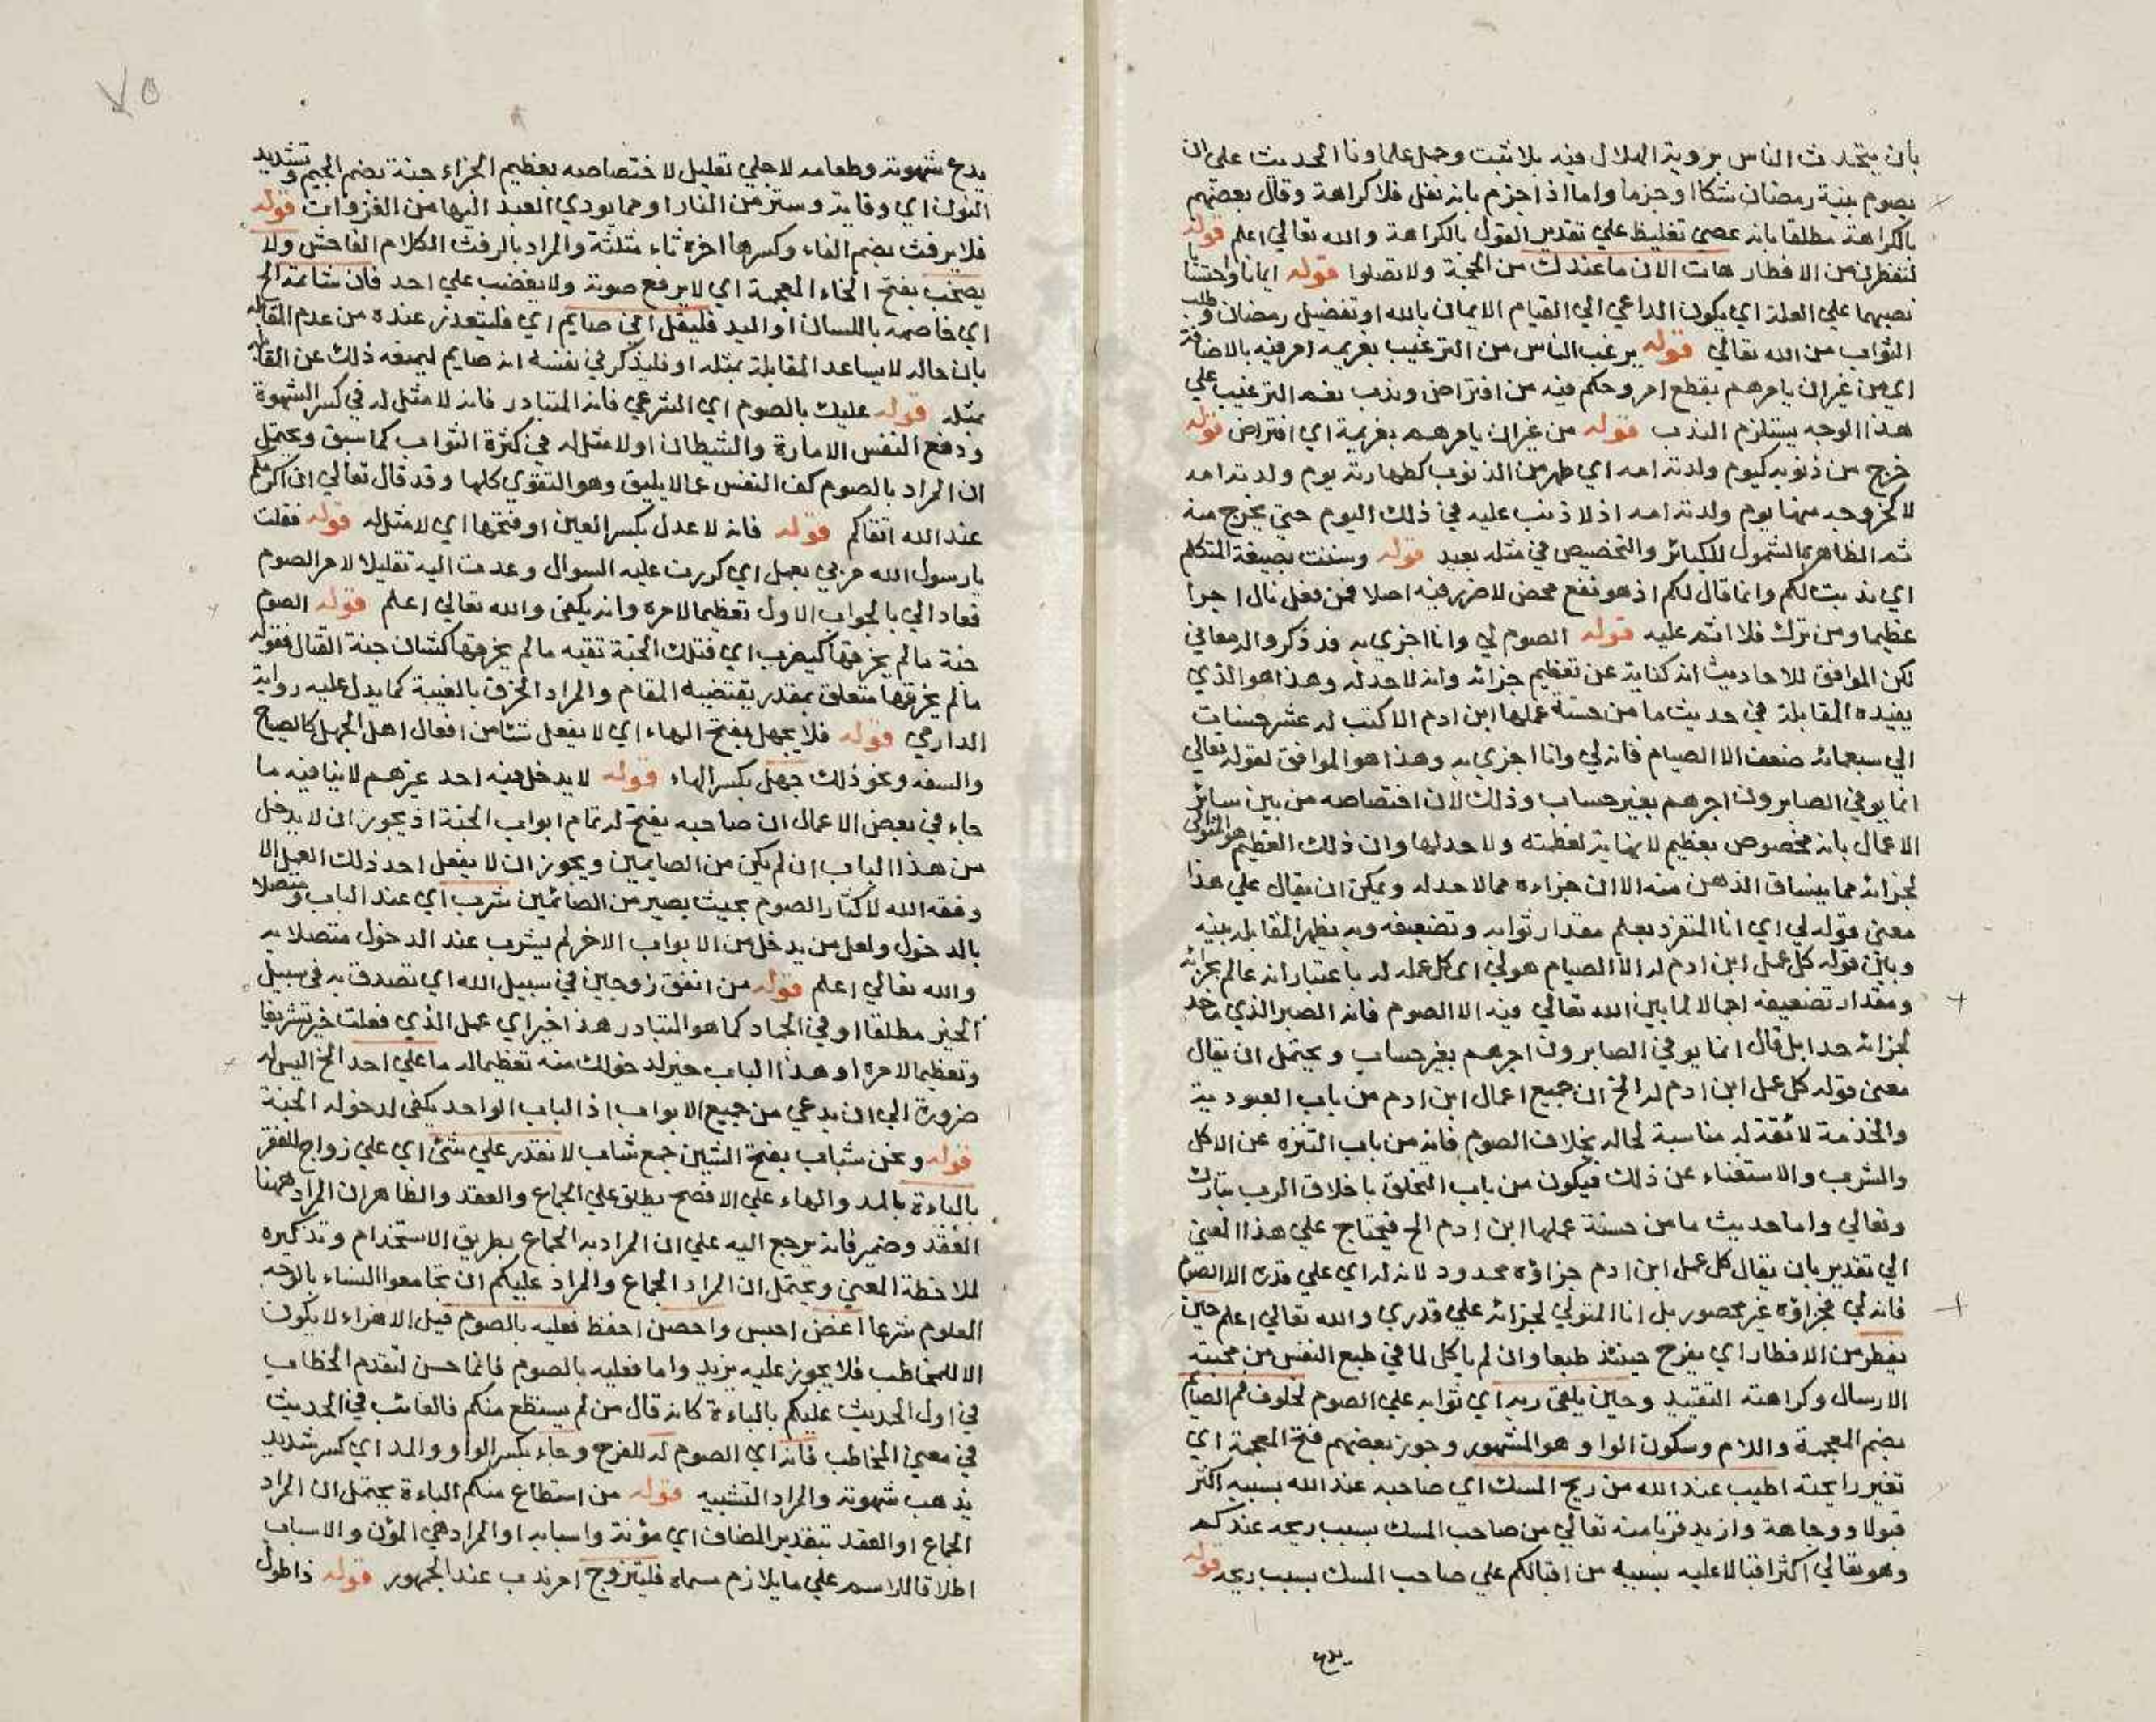 بأن يتحدث الناس برؤية الهلال فيه بلا ثبت وحمل علماونا الحديث على ان
يصوم بنية رمضان شكا او جزما واما اذا جزم بانه نفل فلا كراهة وقال بعضهم
بالكراهة مطلقا بانه عصى تغليظ علي تقدير القول بالكراهة والله تعالي اعلم قوله
لتفطرن من الافطار هات الان ما عندك من الحجة ولا تصلوا قوله ايمانا واحتسابا
نصبهما علي العلة اي يكون الداعي الي القيام الايمان بالله او تفضيل رمضان وطلب
الثواب من الله تعالي قوله يرغب الناس من الترغيب بعزيمه امر فيه بالاضافة
اي من غير ان يامرهم بقطع امر وحكم فيه من افتراض وندب نعم الترغيب علي
هذا الوجه يستلزم الندب قوله من غير ان يامرهم بعزيمة اي افتراض قوله
خرج من ذنوبه كيوم ولدته امه اي طهر من الذنوب كطهارته يوم ولدته امه
لا كخروجه منها يوم ولدته امه اذ لا ذنب عليه في ذلك اليوم حتي يخرج منه
ثم الظاهر الشمول للكبائر والتخصيص في مثله بعيد قوله وسننت بصيغة المتكلم
اي ندبت لكم وانما قال لكم اذ هو نفع محض لا ضرر فيه اصلا فمن فعل نال اجرا
عظيما ومن ترك فلا اثم عليه قوله الصوم لي وانا اجزي به قد ذكروا له معاني
لكن الموافق للاحاديث انه كناية عن تعظيم جزائه وانه لا حد له وهذا هو الذي
يفيده المقابلة في حديث ما من حسنة عملها ابن ادم الا كتب له عشر حسنات
الي سبعمائة ضعف الا الصيام فانه لي وانا اجزي به وهذا هو الموافق لقوله تعالي
انما يوفي الصابرون اجرهم بغير حساب وذلك لان اختصاصه من بين سائر
الاعمال بانه مخصوص بعظيم لا نهاية لعظمته ولا حد لها وان ذلك العظيم هو المتولي
لجزائه مما ينساق الذهن منه الا ان جزاءه مما لا حد له ويمكن ان يقال علي هذا
معني قوله لي اي انا المتفرد بعلم مقدار ثوابه وتضعيفه وبه يظهر المقابلة بينه
وبين قوله كل عمل ابن ادم له الا الصيام هو لي اي كل عمله له باعتبار انه عالم بجزائه
ومقدار تضعيفه اجمالا لما بين الله تعالي فيه الا الصوم فانه الصبر الذي ما حد
لجزائه حدا بل قال انما يوفي الصابرون اجرهم بغير حساب ويحتمل ان يقال
معني قوله كل عمل ابن ادم له الخ ان جميع اعمال ابن ادم من باب العبودية
والخدمة لائقة له مناسبة لحاله بخلاف الصوم فانه من باب التنزه عن الاكل
والشرب والاستغناء عن ذلك فيكون من باب التخلق باخلاق الرب تبارك
وتعالي واما حديث ما من حسنة عملها ابن ادم الخ فيحتاج علي هذا المعني
الي تقدير بان يقال كل عمل ابن ادم جزاؤه محدود لانه له اي علي قدره الا الصوم
فانه لي فجزاؤه غير محصور بل انا المتولي لجزائه علي قدري والله تعالي اعلم حين
يفطر من الافطار اي يفرح حينئذ طبعا وان لم ياكل لما في طبع النفس من محبته
الارسال وكراهته التقييد وحين يلقي ربه اي ثوابه علي الصوم لخلوف فم الصائم
بضم المعجمة واللام وسكون الواو هو المشهور وجوز بعضهم فتح المعجمة اي
تغير رايحته اطيب عند الله من ريح المسك اي صاحبه عند الله بسببه اكثر
قبولا ووجاهة وازيد قربا منه تعالي من صاحب المسك بسبب ريحه عندكم
وهو تعالي اكثر اقبالا عليه بسببه من اقبالكم علي صاحب المسك بسبب ريحه قوله
يدع
٧٥
يدع شهوته وطعامه لاجلي تعليل لاختصاصه بعظيم الجزاء جنة بضم الجيم وتشديد
النون اي وقاية وستر من النار او مما يودي العبد اليها من الشهوات قوله
فلا يرفث بضم الفاء وكسرها اخره ثاء مثلثة والمراد بالرفث الكلام الفاحش ولا
يصخب بفتح الخاء المعجمة اي لا يرفع صوته ولا يغضب علي احد فان شاتمه الخ
اي خاصمه باللسان او اليد فليقل اني صايم اي فليعتذر عنده من عدم المقابلة
بان حاله لا يساعد المقابلة بمثله او فليذكر في نفسه انه صايم ليمنعه ذلك عن المقابلة
بمثله قوله عليك بالصوم اي الشرعي فانه المتبادر فانه لا مثل له في كسر الشهوة
ودفع النفس الامارة والشيطان او لا مثل له في كثرة الثواب كما سبق ويحتمل
ان المراد بالصوم كف النفس عما لا يليق وهو التقوي كلها وقد قال تعالي ان اكرمكم
عند الله اتقاكم قوله فانه لا عدل بكسر العين او فتحها اي لا مثل له قوله فقلت
يا رسول الله مرني بعمل اي كررت عليه السوال وعدت اليه تقليلا لامر الصوم
فعاد الي بالجواب الاول تعظيما لامره وانه يكفي والله تعالي اعلم قوله الصوم
جنة ما لم يخرقها كيضرب اي فتلك الجنة تقيه ما لم يخرقها كشان جنة القتال فقوله
ما لم يخرقها متعلق بمقدر يقتضيه المقام والمراد الخرق بالغيبة كما يدل عليه رواية
الدارمي قوله فلا يجهل بفتح الهاء اي لا يفعل شئا من افعال اهل الجهل كالصياح
والسفه ونحو ذلك جهل بكسر الهاء قوله لا يدخل فيه احد غيرهم لا ينافيه ما
جاء في بعض الاعمال ان صاحبه يفتح له تمام ابواب الجنة اذ يجوز ان لا يدخل
من هذا الباب ان لم يكن من الصايمين ويجوز ان لا يفعل احد ذلك العمل الا
وفقه الله لاكثار الصوم بحيث يصير من الصائمين شرب اي عند الباب ومتصلا
بالدخول ولعل من يدخل من الابواب الاخر لم يشرب عند الدخول متصلا به
والله تعالي اعلم قوله من انفق زوجين في سبيل الله اي تصدق به في سبيل
الخير مطلقا او في الجهاد كما هو المتبادر هذا خير اي عمل الذي فعلت خير تشريفا
وتعظيما لامره او هذا الباب خير لدخولك منه تعظيما له ما علي احد الخ اليس له
ضرورة الي ان يدعي من جميع الابواب اذ الباب الواحد يكفي لدخوله الجنة
قوله ونحن شباب بفتح الشين جمع شاب لا نقدر علي شئ اي علي زواج للفقر
بالباءة بالمد والهاء علي الافصح يطلق علي الجماع والعقد والظاهر ان المراد ههنا
العقد وضمير فانه يرجع اليه علي ان المراد به الجماع بطريق الاستخدام وتذكيره
لملاحظة المعني ويحتمل ان المراد الجماع والمراد عليكم ان تجامعوا النساء بالوجه
المعلوم شرعا اغض احبس واحصن احفظ فعليه بالصوم قيل الاغراء لا يكون
الا للمخاطب فلا يجوز عليه بزيد واما فعليه بالصوم فانما حسن لتقدم الخطاب
في اول الحديث عليكم بالباءة كانه قال من لم يستطع منكم فالغائب في الحديث
في معني المخاطب فانه اي الصوم له للفرج وجاء بكسر الواو والمد اي كسر شديد
يذهب شهوته والمراد التشبيه قوله من استطاع منكم الباءة يحتمل ان المراد
الجماع او العقد بتقدير المضاف اي مؤنة واسبابه او المراد هي المؤن والاسباب
اطلاقا للاسم علي ما يلازم مسماه فليتزوج امر ندب عند الجمهور قوله ذا طول